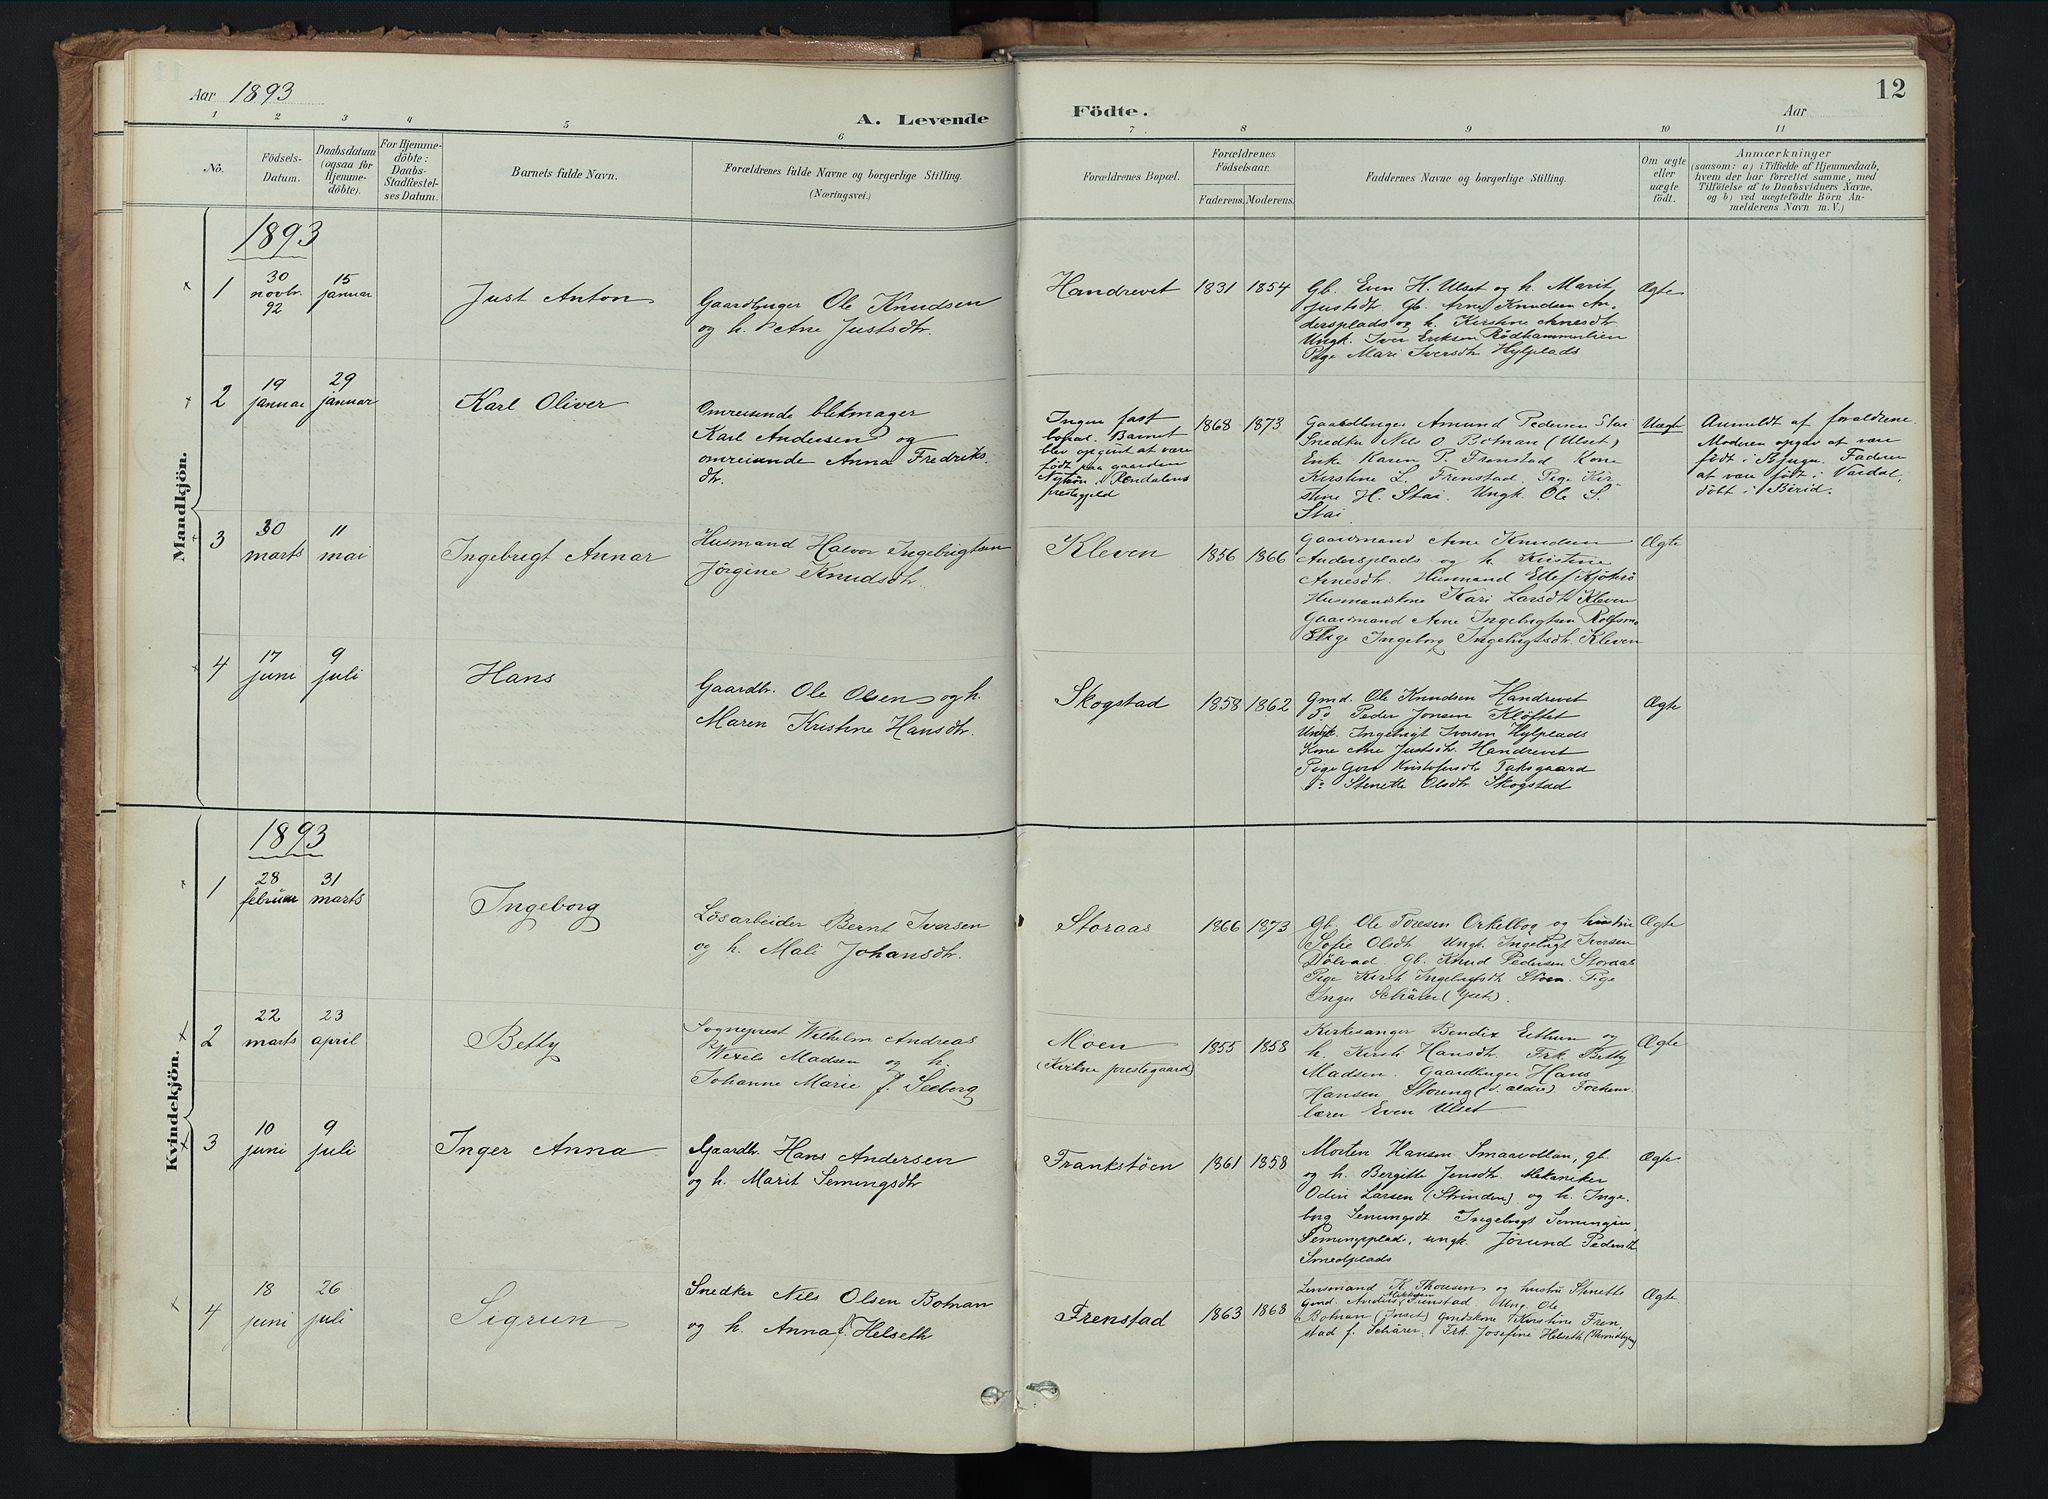 Aar 1893
A. Levende Födte.
Aar
12
1 2 3 4 5 6 7 8 9 10 11
No.
Födsels-
Datum.
Daabsdatum
(ogsaa for
Hjemme-
döbte).
For Hjemme-
döbte:
Daabs-
Stadfæstel-
ses Datum.
Barnets fulde Navn.
Forældrenes fulde Navne og borgerlige Stilling.
(Næringsvei.)
Forældrenes Bopæl.
Forældrenes
Födselsaar.
Faderens. Moderens.
Faddernes Navne og borgerlige Stilling.
Om ægte
eller
uægte
födt.
Anmærkninger
(saasom: a) i Tilfælde af Hjemmedaab,
hvem der har forrettet samme, med
Tilföielse af to Daabsvidners Navne,
og b) ved uægtefödte Börn An-
melderens Navn m. V.)
Mandkjön.
1893
1
30
novbr.
92
15
januar
Just Anton
Gaardbruger Ole Knudsen
og h. Ane Justsdtr.
Handrevet
1831 1854
Gb. Even H. Ulset og h. Marit
Justsdtr. Gb. Arne Knudsen An-
dersplads og h. Kirstine Arnesdtr.
Ungk. Iver Eriksen Rödhammerlien
Pige Mari Iversdtr. Hylplads
Ægte
2
19
januar
29
januar
Karl Oliver
Omreisende blikmager
Karl Andersen og
omreisende Anna Fredriks-
dtr.
Ingen fast
bopæl. Barnet
blev opgivet at være
födt paa gaarden
i Rendalens
prestegjeld
1868 1873
Gaardbruger Amund Pedersen Stai
Snedker Nils O. Botnan (Ulset)
Enke Karen P. Frenstad Kone
Kirstine L. Frenstad. Pige Kir-
stine H. Stai. Ungk. Ole S.
Stai.
Uægte
Anmeldt af forældrene.
Moderen opgav at være
födt i Bjugn. Faderen
at være födt i Vardal,
döbt i Birid.
3
30
marts
11
mai
Ingebrigt Annar
Husmand Halvor Ingebrigtsen
Jörgine Knudsdtr.
Kleven
1856 1866
Gaardmand Arne Knudsen
Andersplads og h. Kristine
Arnesdtr. Husmand Ellef Kjölsrö
Husmandskone Kari Larsdtr. Kleven
Gaardmand Arne Ingebrigtsen Rolfsmo
Pige Ingeborg Ingebrigtsdtr. Kleven
Ægte
4
17
juni
9
juli
Hans
Gaardbr. Ole Olsen og h.
Maren Kristine Hansdtr.
Skogstad
1858 1862
Gmd. Ole Knudsen Handrevet
Do Peder Jonsen Klöftet
Ungk. Ingebrigt Iversen Hylplads
Kone Ane Justsdtr. Handrevet
Pige Goro Kristofersdtr. Taksgaard
Do Stenette Olsdtr. Skogstad
Ægte
Kvindekjön.
1893
1
28
februar
31
marts
Ingeborg
Lösarbeider Bernt Iversen
og h. Mali Johansdtr.
Storaas
1866 1873
Gb. Ole Toresen Orkelbog og hustru
Sofie Olsdtr. Ungk. Ingebrigt Iversen
Gb. Knud Pedersen Storaas
Pige Kirsti Ingebrigtsdtr. Stoen. Pige
Inger Schärer (Yset).
Ægte
2
22
marts
23
april
Betty
Sogneprest Wilhelm Andreas
Wexels Madsen og h.
Johanne Marie f. Seeberg
Moen
(Kvikne prestegaard)
1855 1858
Kirkesanger Bendix Esthun og
h. Kirsti Hansdtr. Frk. Betty
Madsen. Gaardbruger Hans
Hansen Storeng (d. ældre). Forhenv.
lærer Even Ulset
Ægte
3
10
juni
9
juli
Inger Anna
Gaardbr. Hans Andersen
og h. Marit Semingsdtr
Frankstöen
1861 1858
Morten Hansen Smaavollan, gb.
og h. Bergitte Jensdtr. Mekaniker
Odin Larsen (Strinden) og h. Inge-
borg Semingsdtr. Ingebrigt Semingsen
Semingsplads, ungk. Jörund Pedersdtr.
Smedplads
Ægte
4
18
juni
26
juli
Sigrun
Snedker Nils Olsen Botnan
og h. Anna f. Helseth
Frenstad
1863 1868
Lensmand K. Thoresen og hustru Stenette
Gmd. Anders Mikkelsen Frenstad Ung. Ole
Botnan (Inset) Gmdskone Kirstine Fren-
stad f. Schärer. Frk. Josefine Helseth (Throndhjem)
Ægte